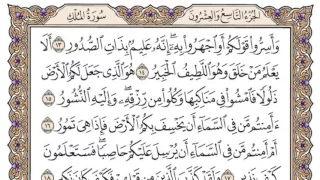 الجُزْءُ التَّاسِعُ وَالعِشْرُونَ سُورَةُ المُلْكِ
وَأَسِرُّواْ قَوْلَكُمْ أَوِ ٱجْهَرُواْ بِهِۦٓۖ إِنَّهُۥ عَلِيمُۢ بِذَاتِ ٱلصُّدُورِ ١٣ أَلَا
يَعْلَمُ مَنْ خَلَقَ وَهُوَ ٱللَّطِيفُ ٱلْخَبِيرُ ١٤ هُوَ ٱلَّذِى جَعَلَ لَكُمُ ٱلْأَرْضَ
ذَلُولًا فَٱمْشُواْ فِى مَنَاكِبِهَا وَكُلُواْ مِن رِّزْقِهِۦۖ وَإِلَيْهِ ٱلنُّشُورُ ١٥
ءَأَمِنتُم مَّن فِى ٱلسَّمَآءِ أَن يَخْسِفَ بِكُمُ ٱلْأَرْضَ فَإِذَا هِىَ تَمُورُ ١٦
أَمْ أَمِنتُم مَّن فِى ٱلسَّمَآءِ أَن يُرْسِلَ عَلَيْكُمْ حَاصِبًاۖ فَسَتَعْلَمُونَ